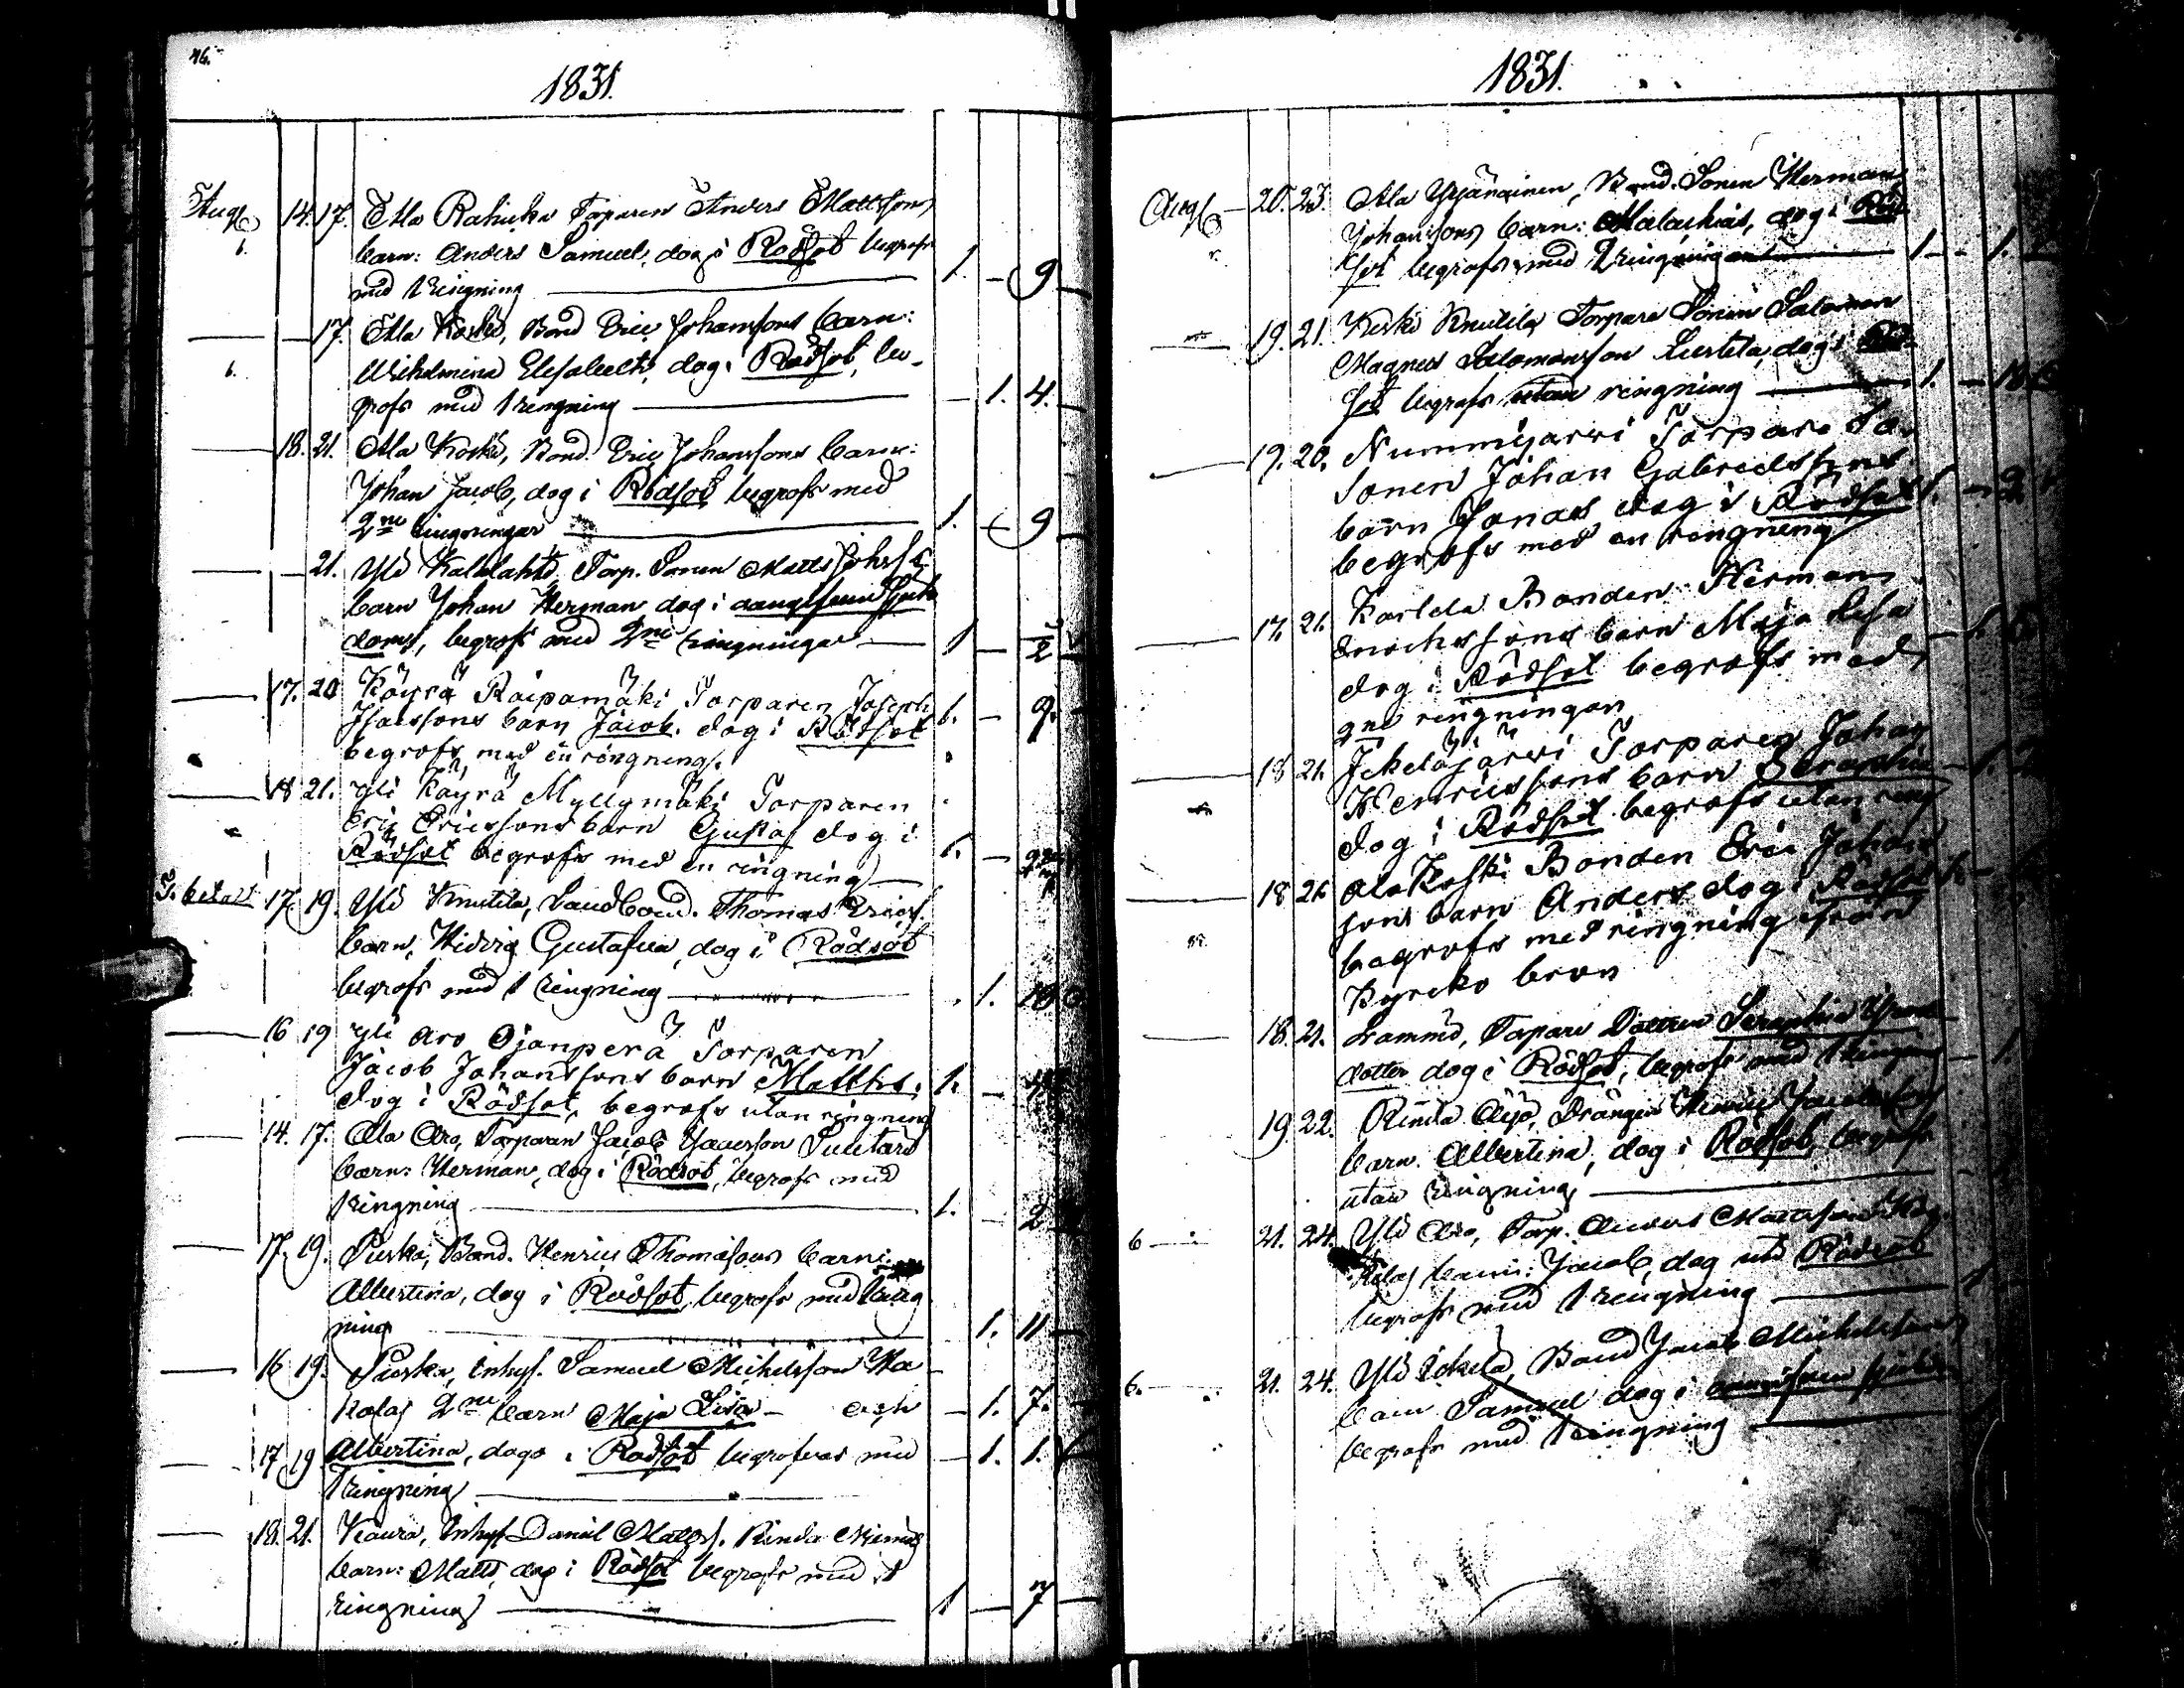 46.
1831.
Aug 14. 17. Ala Rahiko Torparen Anders Mattssons
barn: Anders Samuel, dog i Rödsot begrofs
med 1 ringning 1. - 9
17. Ala Koski, Bond. Eric Johanssons barn:
Wilhelmina Elisabeth, dog i Rödsot, be-
grofs med 1 ringning 1. 4.
18. 21. Ala Koski, Bond. Eric Johanssons barn:
Johan Jacob, dog i Rödsot begrofs med
2ne ringningar 1. 9
21. Yli Kalalahti Torp. Sonen Matts Johss.
barn Johan Herman dog i
doms, begrofs med 2ne ringningar 1 -
17. 20 Köyrä Raipamäki Torparen Joseph
Isacssons barn Jacob. dog i Rödsot 1. - 9.
begrofs med en ringning.
18 21. Yli Käyrä Myllymäki Torparen
Eric Ericssons barn Gustaf dog i
Rödsot begrofs med en ringning 1. -
17. 19. Yli Knutila, Landbond. Thomas Ericss.
barn, Hedvig Gustafva, dog i Rödsot
begrofs med 1 ringning 1. 10
16 19 Yli Aro Ojanperä Torparen
Jacob Johanssons barn Matths. 1.
dog i Rödsot, begrofs utan ringning
14. 17. Ala Aro, Torparen Jacob Isacsson
barn: Herman, dog i Rödsot, begrofs med
1 ringning 1. 2
17. 19. Puska, Bond. Henric Thomassons barn:
Albertina, dog i Rödsot, begrofs med 1 ring
ning 1. 11
16 19. Puska, Inhys. Samuel Michelsson
2ne barn Maja Lisa - och 1. 7.
17 19 Albertina, dogo i Rödsot begrofvos med 1. 1.
1 ringning
18. 21. Kaura, Inhys Daniel Mattss. Rinda
barn: Matts, dog i Rödsot begrofs med 1
ringning 1 - 7
1831.
Aug 20. 23. Ala Yrjänäinen, Bond. Sonen Herman
Johanssons barn: Malachias, dog i Röd
sot begrofs med 1 ringning 1 - 1.
19. 21. Keski Knutila Torpare Sonen Salomon
Magnus Salomonsson dog i Röd-
sot begrofs utan ringning 1. -
19. 20. Nummijärvi Torpare
Sonen Johan Gabrielssons
barn Jonas dog i Rödsot 1. - 2
begrofs med en ringning
17. 21. Karlela Bonden Herman
Erichssons barn Maja Lisa
dog i Rödsot begrofs med
2ne ringningar
18 21. Ikeläjärvi Torparen Johan
Henricssons barn Seraphia
dog i Rödsot begrofs utan ring
18 21. Ala Koski Bonden Eric Johans
sons barn Anders dog i Rödsot
begrofs med ringning från
Kyrcko bron
18. 21. Lammi, Torpare Dottren Seraphia
dotter dog i Rödsot, begrofs med 1 ringning 1.
19. 22. Rinda Drängen Henric
barn. Albertina, dog i Rödsot, begrofs
utan ringning
6 21. 24. Yli Aro, Torp. Anders Mattsson
barn: Jacob, dog uti Rödsot
begrofs med 1 ringning 1
6. 21. 24. Yli Ickelä, Bond Jacob Michelssons
barn Samuel dog i
begrofs med 1 ringning